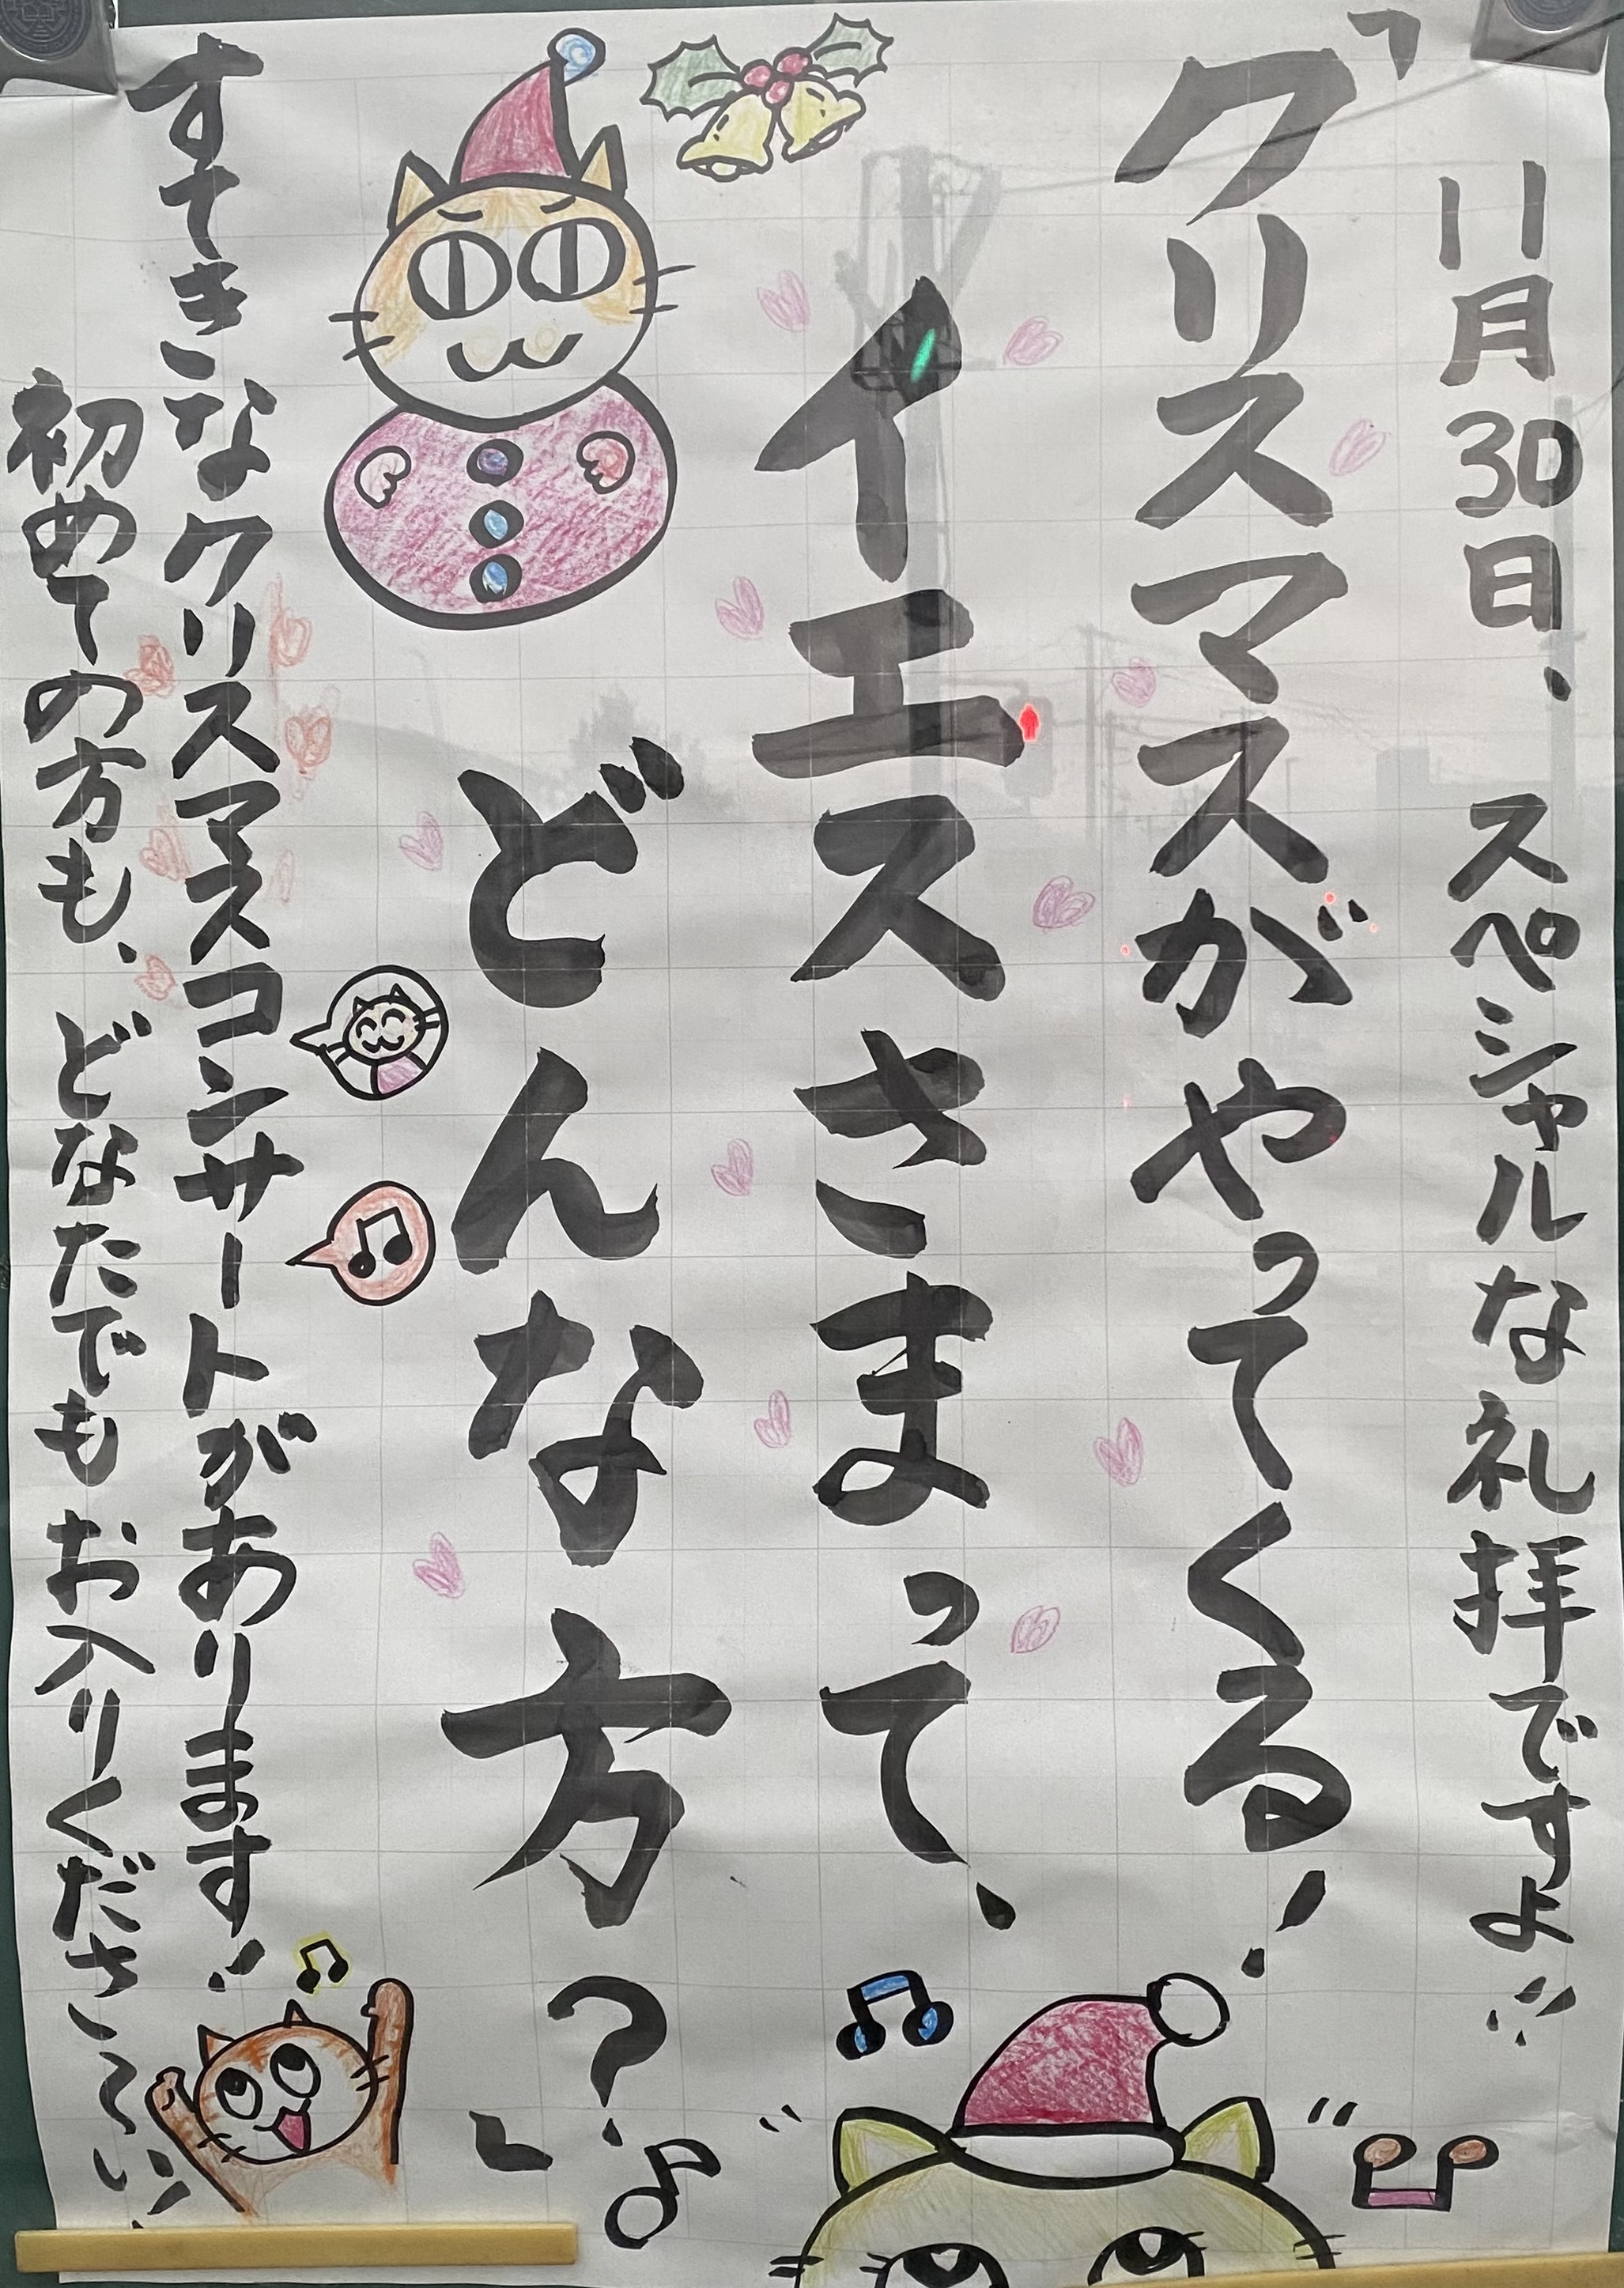 11月30日、スペシャルな礼拝ですよ!!
「クリスマスがやってくる!
イエスさまって、
どんな方?」
すてきなクリスマスコンサートがあります!!
初めての方も、どなたでもお入りくださ〜い!!